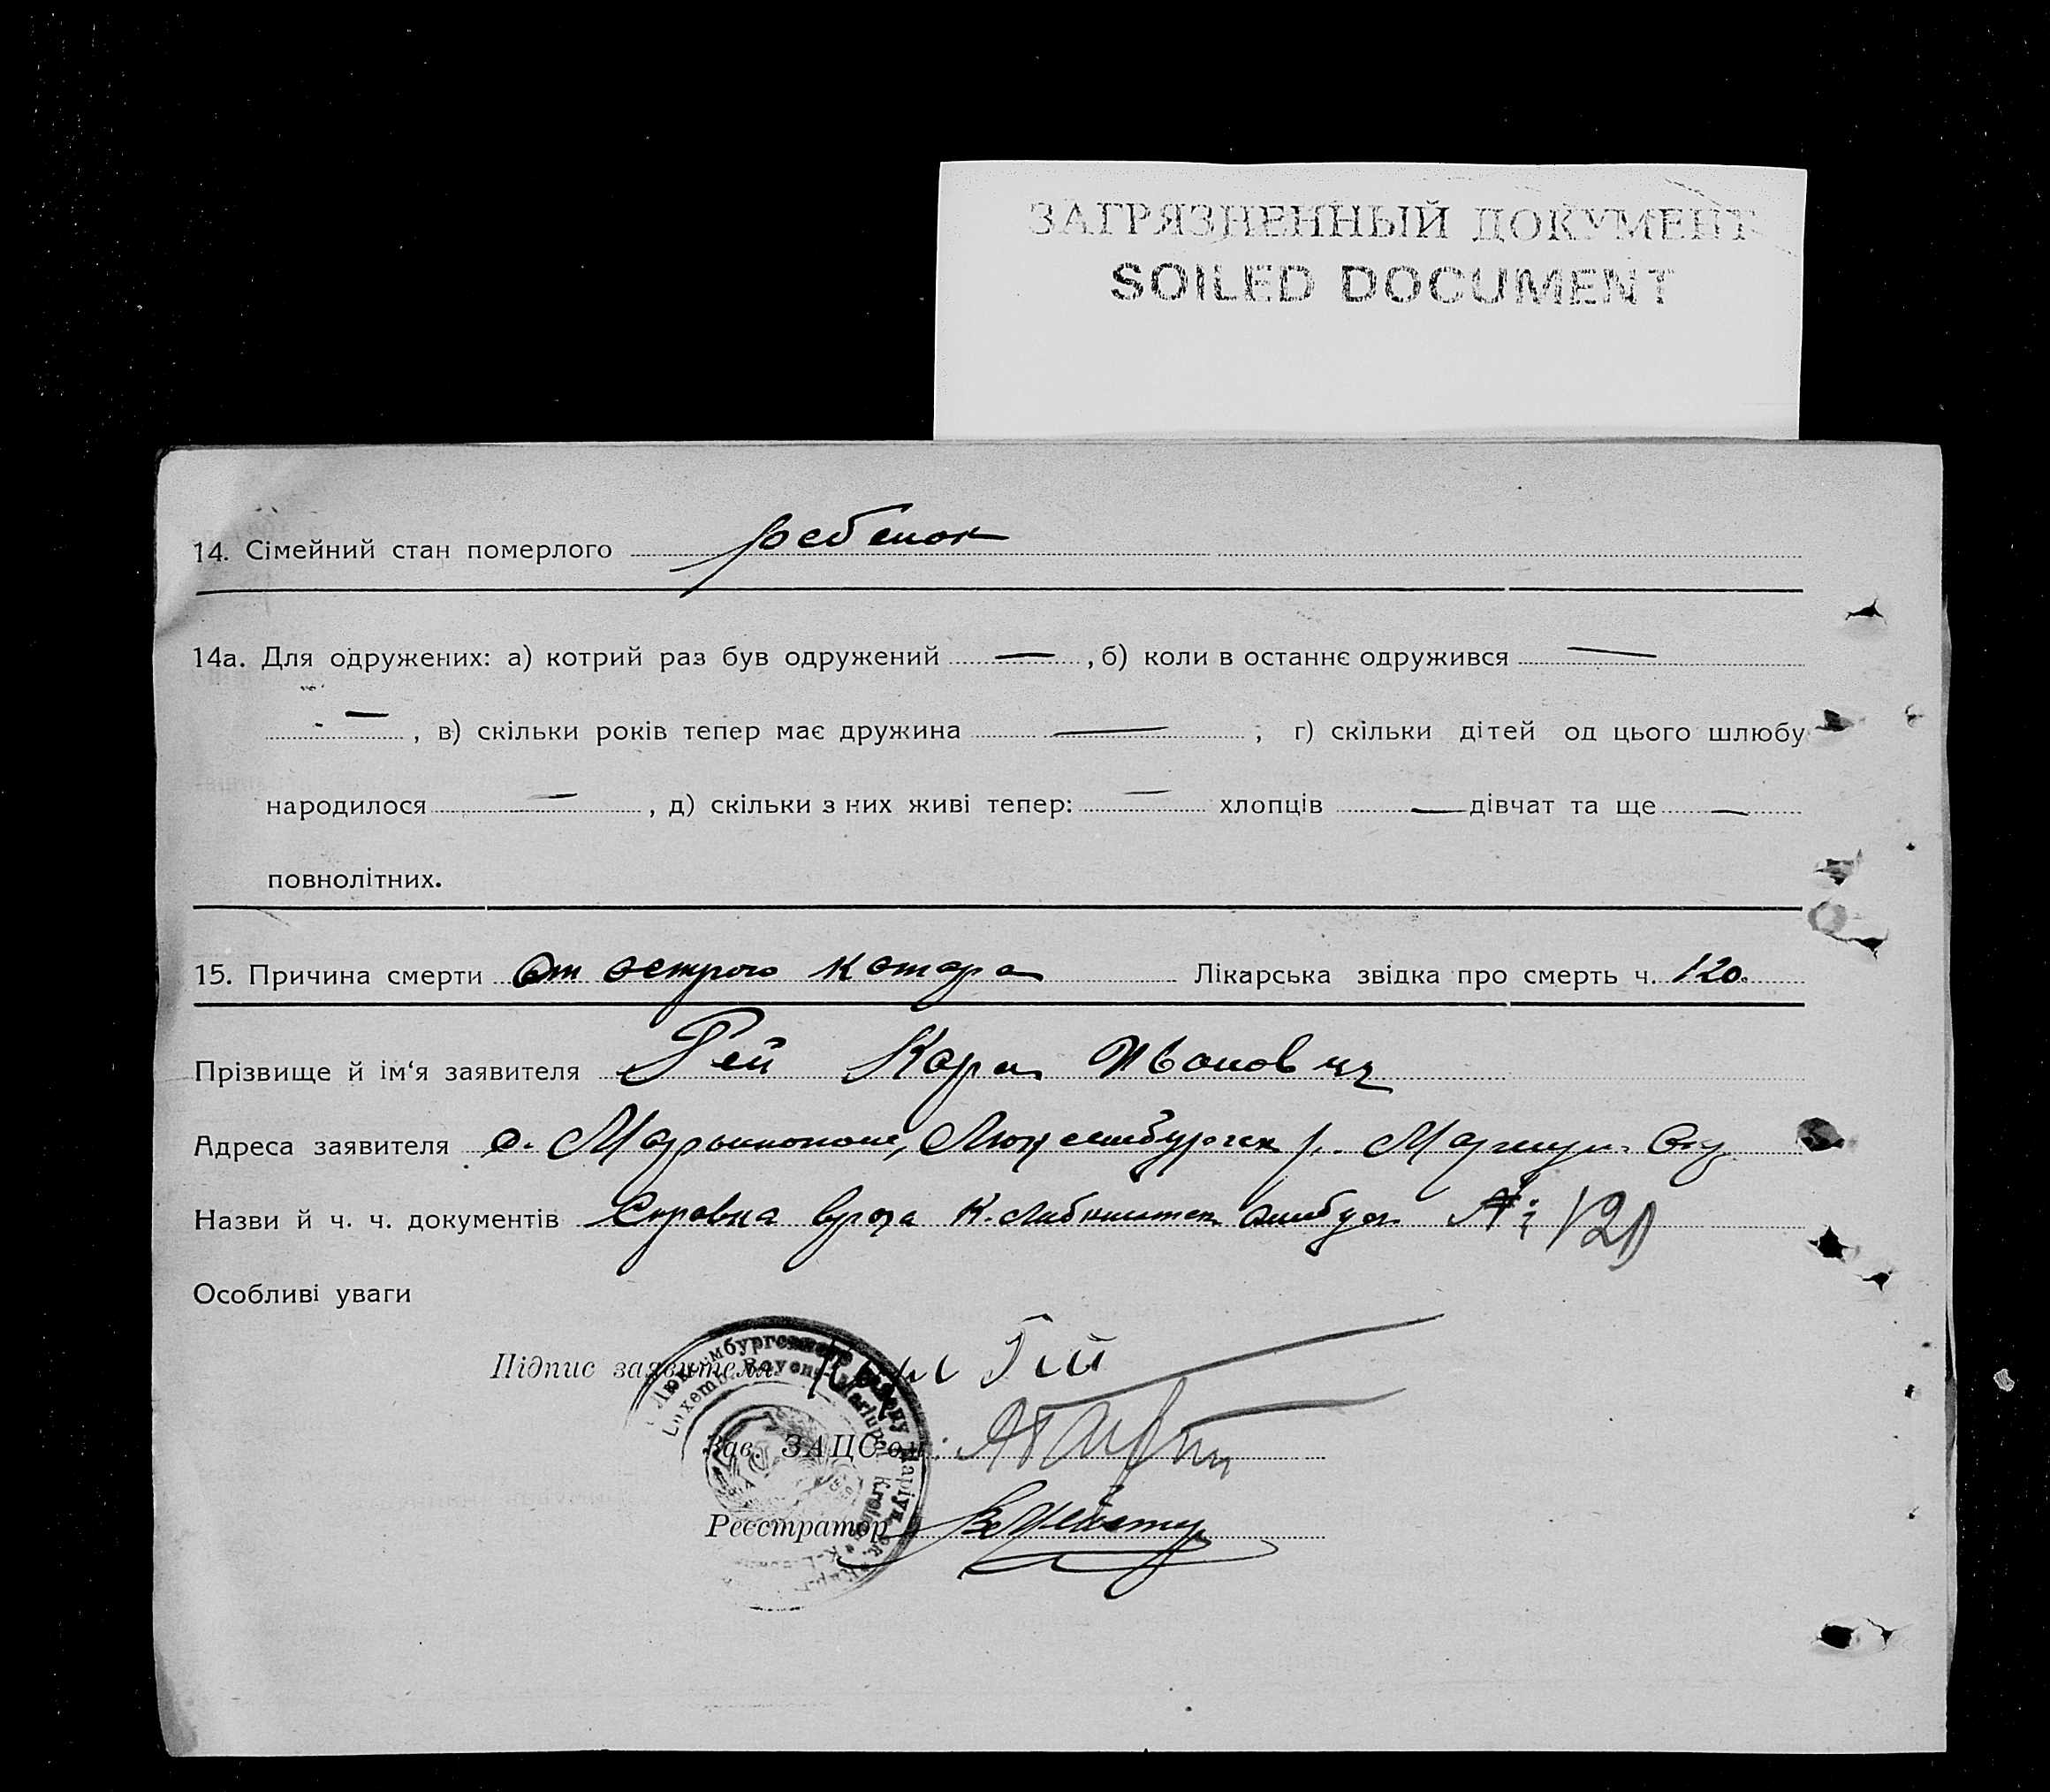 ЗАГРЯЗНЕННЫЙ ДОКУМЕНТ
SOILED DOCUMENT
14. Сімейний стан померлого ребенок
14а. Для одружених: а) котрий раз був одружений — , б) коли в останнє одружився —
— , в) скільки років тепер має дружина — ; г) скільки дітей од цього шлюбу
народилося — , д) скільки з них живі тепер: — хлопців — дівчат та ще —
повнолітних.
15. Причина смерти От острого катара Лікарська звідка про смерть ч. 120.
Прізвище й ім'я заявителя Гей Карл Иванович
Адреса заявителя с. Люксембургск р.
Назви й ч. ч. документів Справка врача К. Либкнехт 120
Особливі уваги
Підпис заявителя Карл Гей
Зав. ЗАЦС'ом:
Реєстратор